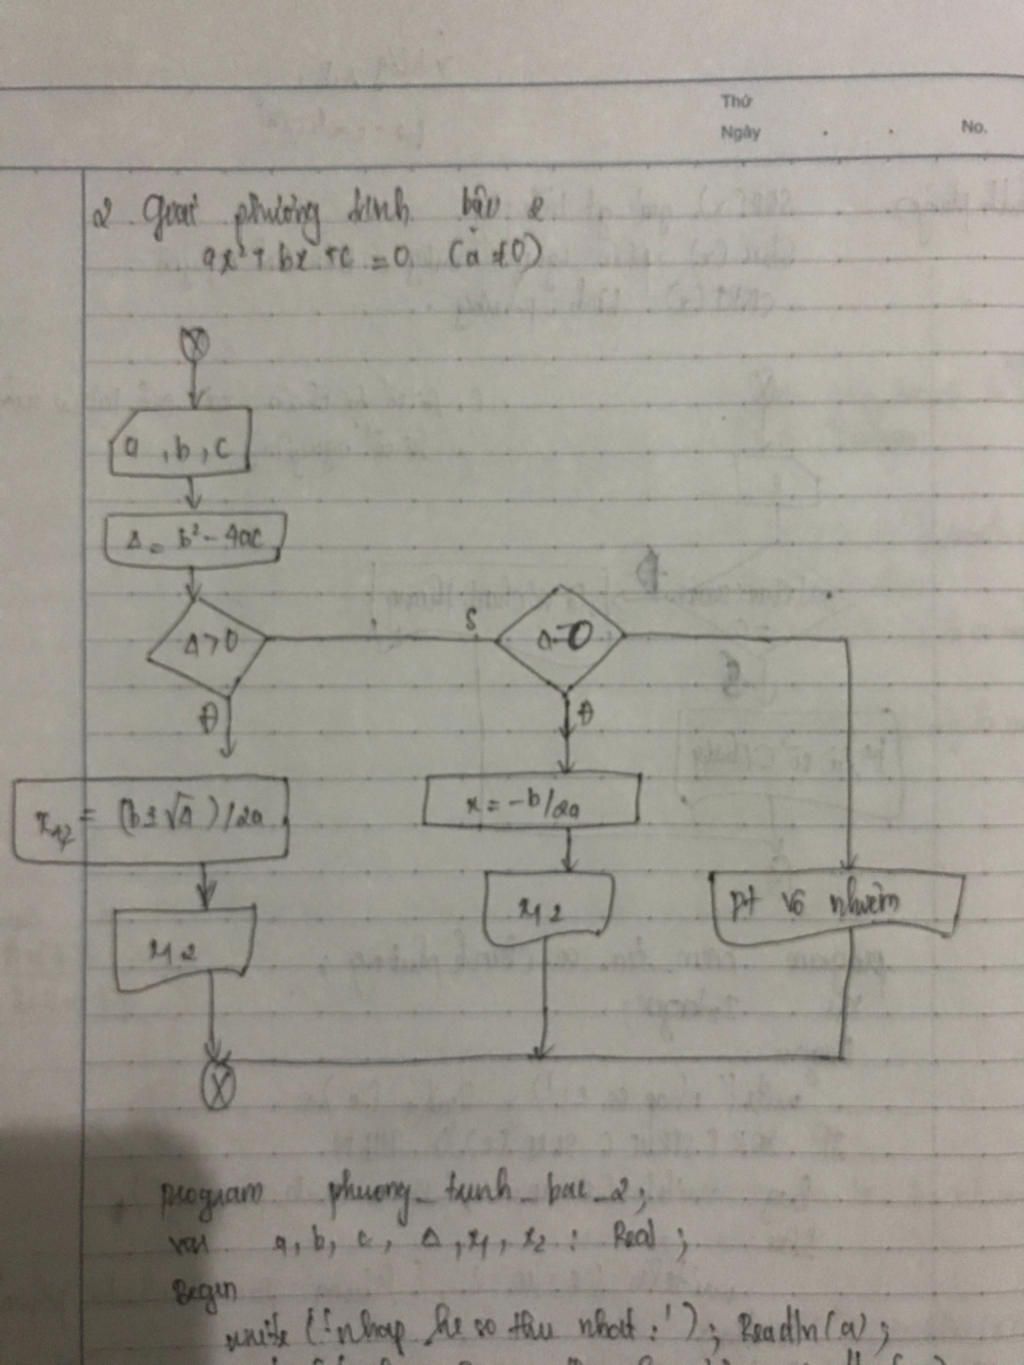 Thứ
Ngày . . No.
2 Giải phương trình bậc 2
ax²+bx+c=0 (a≠0)
a, b, c
Δ = b² - 4ac
Δ>0
S
Δ=0
Đ
Đ
x₁,₂ = (b±√Δ)/2a
x = -b/2a
x₁,₂
x₁,₂
pt vô nhiệm
program phuong_trinh_bac_2;
var a, b, c, Δ, x₁, x₂ : Real;
Begin
write ('nhap he so thu nhat:'); Readln(a);